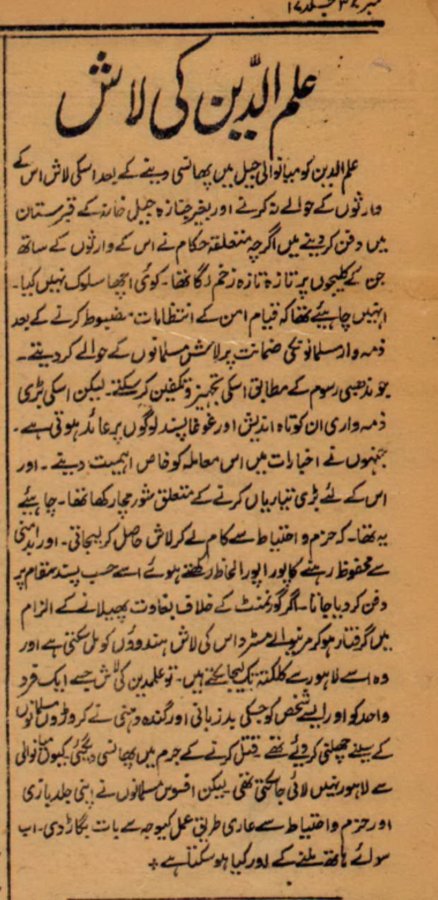 نمبر ۳۷ جلد ۱۷
علم الدّین کی لاش
علم الدین کو میانوالی جیل میں پھانسی دینے کے بعد اسکی لاش اس کے
وارثوں کے حوالے نہ کرنے اور بغیر جنازہ جیل خانہ کے قبرستان
میں دفن کر دینے میں اگرچہ متعلقہ حکام نے اس کے وارثوں کے ساتھ
جن کے کلیجوں پر تازہ تازہ زخم لگا تھا۔ کوئی اچھا سلوک نہیں کیا۔
انہیں چاہیئے تھا کہ قیام امن کے انتظامات مضبوط کرنے کے بعد
ذمہ وار مسلمانونکی ضمانت پر لاش مسلمانوں کے حوالے کر دیتے۔
جو مذھبی رسوم کے مطابق اسکی تجہیز و تکفین کر سکتے۔ لیکن اسکی بڑی
ذمہ واری ان کوتاہ اندیش اور غوغا پسند لوگوں پر عائد ہوتی ہے۔
جنہوں نے اخبارات میں اس معاملہ کو خاص اہمیت دیتے۔ اور
اس کے لئے بڑی تیاریاں کرنے کے متعلق شور مچا رکھا تھا۔ چاہیئے
یہ تھا۔ کہ حزم و احتیاط سے کام لے کر لاش حاصل کر لیجاتی۔ اور بدامنی
سے محفوظ رہنے کا پورا پورا لحاظ رکھتے ہوئے اسے حسب پسند مقام پر
دفن کر دیا جاتا۔ اگر گورنمنٹ کے خلاف بغاوت پھیلانے کے الزام
میں گرفتار ہو کر مرنیوالے مسٹر داس کی لاش ہندوؤں کو مل سکتی ہے اور
وہ اسے لاہور سے کلکتہ تک لیجا سکتے ہیں۔ تو علمدین کی لاش جسے ایک فرد
واحد کو اور ایسے شخص کو جسکی بدزبانی اور گندہ دہنی نے کروڑوں مسلمانوں
کے سینے چھلنی کر دیئے تھے۔ قتل کرنے کے جرم میں پھانسی دیگئی۔ کیوں میانوالی
سے لاہور نہیں لائی جا سکتی تھی۔ لیکن افسوس مسلمانوں نے اپنی جلد بازی
اور حزم و احتیاط سے عاری طریق عمل کیوجہ سے بات بگاڑ دی۔ اب
سوائے ہاتھ ملنے کے اور کیا ہو سکتا ہے ÷